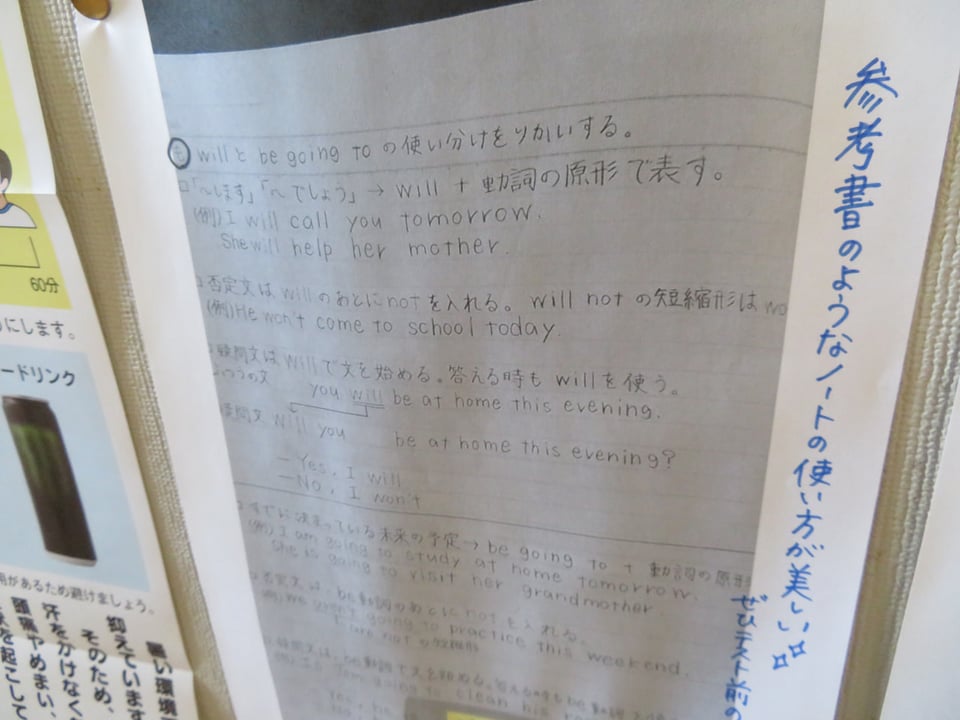 ㋲ willと be going to の使い分けをりかいする。
□「〜します」「〜でしょう」→ will + 動詞の原形で表す。
(例) I will call you tomorrow.
She will help her mother.
□否定文は willのあとにnotを入れる。 will not の短縮形は wo
(例)He won't come to school today.
□疑問文は Willで文を始める。答える時も willを使う。
ふつうの文 you will be at home this evening.
疑問文 Will you be at home this evening?
— Yes, I will
— No, I won't
□すでに決まっている未来の予定→ be going to + 動詞の原形
(例) I am going to study at home tomorrow.
She is going to visit her grandmother
□否定文は、be動詞のあとにnotを入れる。
(例)We aren't going to practice this weekend.
are not の短縮形
going to clean his
参考書のようなノートの使い方が美しい
ぜひテスト前の
60分
にします。
ードリンク
用があるため避けましょう。
暑い環境
抑えています
そのため、
汗をかけなく
頭痛やめまい、
を起こして